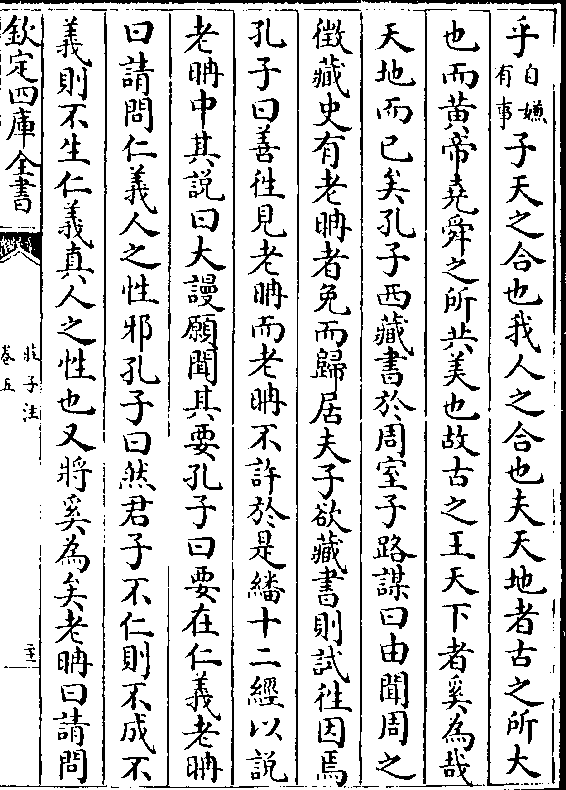 乎自嫌有事子天之合也我人之合也夫天地者古之所大
也而黄帝堯舜之所共美也故古之王天下者奚為哉
天地而已矣孔子西藏書於周室子路謀曰由聞周之
徴藏史有老聃者免而歸居夫子欲藏書則試徃因焉
孔子曰善徃見老聃而老聃不許於是繙十二經以説
老聃中其説曰大謾願聞其要孔子曰要在仁義老聃
曰請問仁義人之性邪孔子曰然君子不仁則不成不
義則不生仁義真人之性也又將奚為矣老聃曰請問
欽定四庫全書
莊子注
卷五